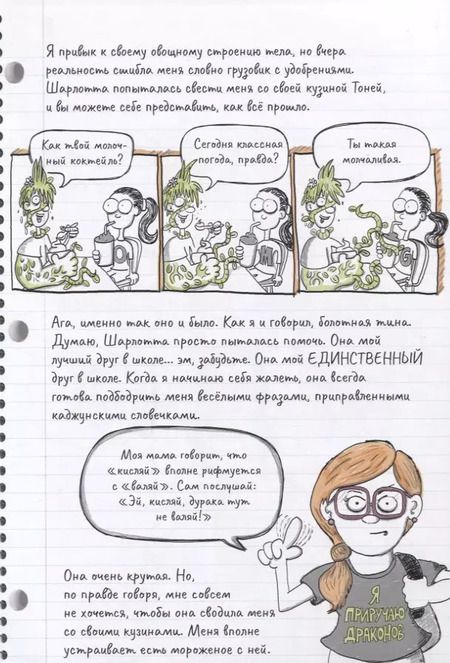 Я привык к своему овощному строению тела, но вчера
реальность сшибла меня словно грузовик с удобрениями.
Шарлотта попыталась свести меня со своей кузиной Тоней,
и вы можете себе представить, как всё прошло.
Как твой молоч-
ный коктейль?
Сегодня классная
погода, правда?
Ты такая
молчаливая.
O
M
G
Ага, именно так оно и было. Как я и говорил, болотная тина.
Думаю, Шарлотта просто пыталась помочь. Она мой
лучший друг в школе... эм, забудьте. Она мой ЕДИНСТВЕННЫЙ
друг в школе. Когда я начинаю себя жалеть, она всегда
готова подбодрить меня весёлыми фразами, приправленными
каджунскими словечками.
Моя мама говорит, что
«кисляй» вполне рифмуется
с «валяй». Сам послушай:
«Эй, кисляй, дурака тут
не валяй!»
Она очень крутая. Но,
по правде говоря, мне совсем
не хочется, чтобы она сводила меня
со своими кузинами. Меня вполне
устраивает есть мороженое с ней.
Я
ПРИРУЧАЮ
ДРАКОНОВ